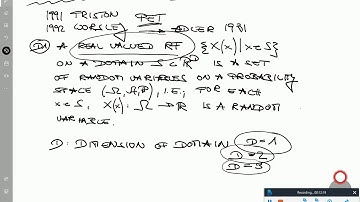 1991 FRISTON PET
1992 WORSLEY ADLER 1981
D1 A REAL VALUED RF {X(x)|x∈S}
ON A DOMAIN S⊂ℝᴰ IS A SET
OF RANDOM VARIABLES ON A PROBABILITY
SPACE (Ω, 𝒜, ℙ), I.E., FOR EACH
x∈S, X(x): Ω → ℝ IS A RANDOM
VARIABLE.
D: DIMENSION OF DOMAIN D=1
D=2
D=3
Recording...